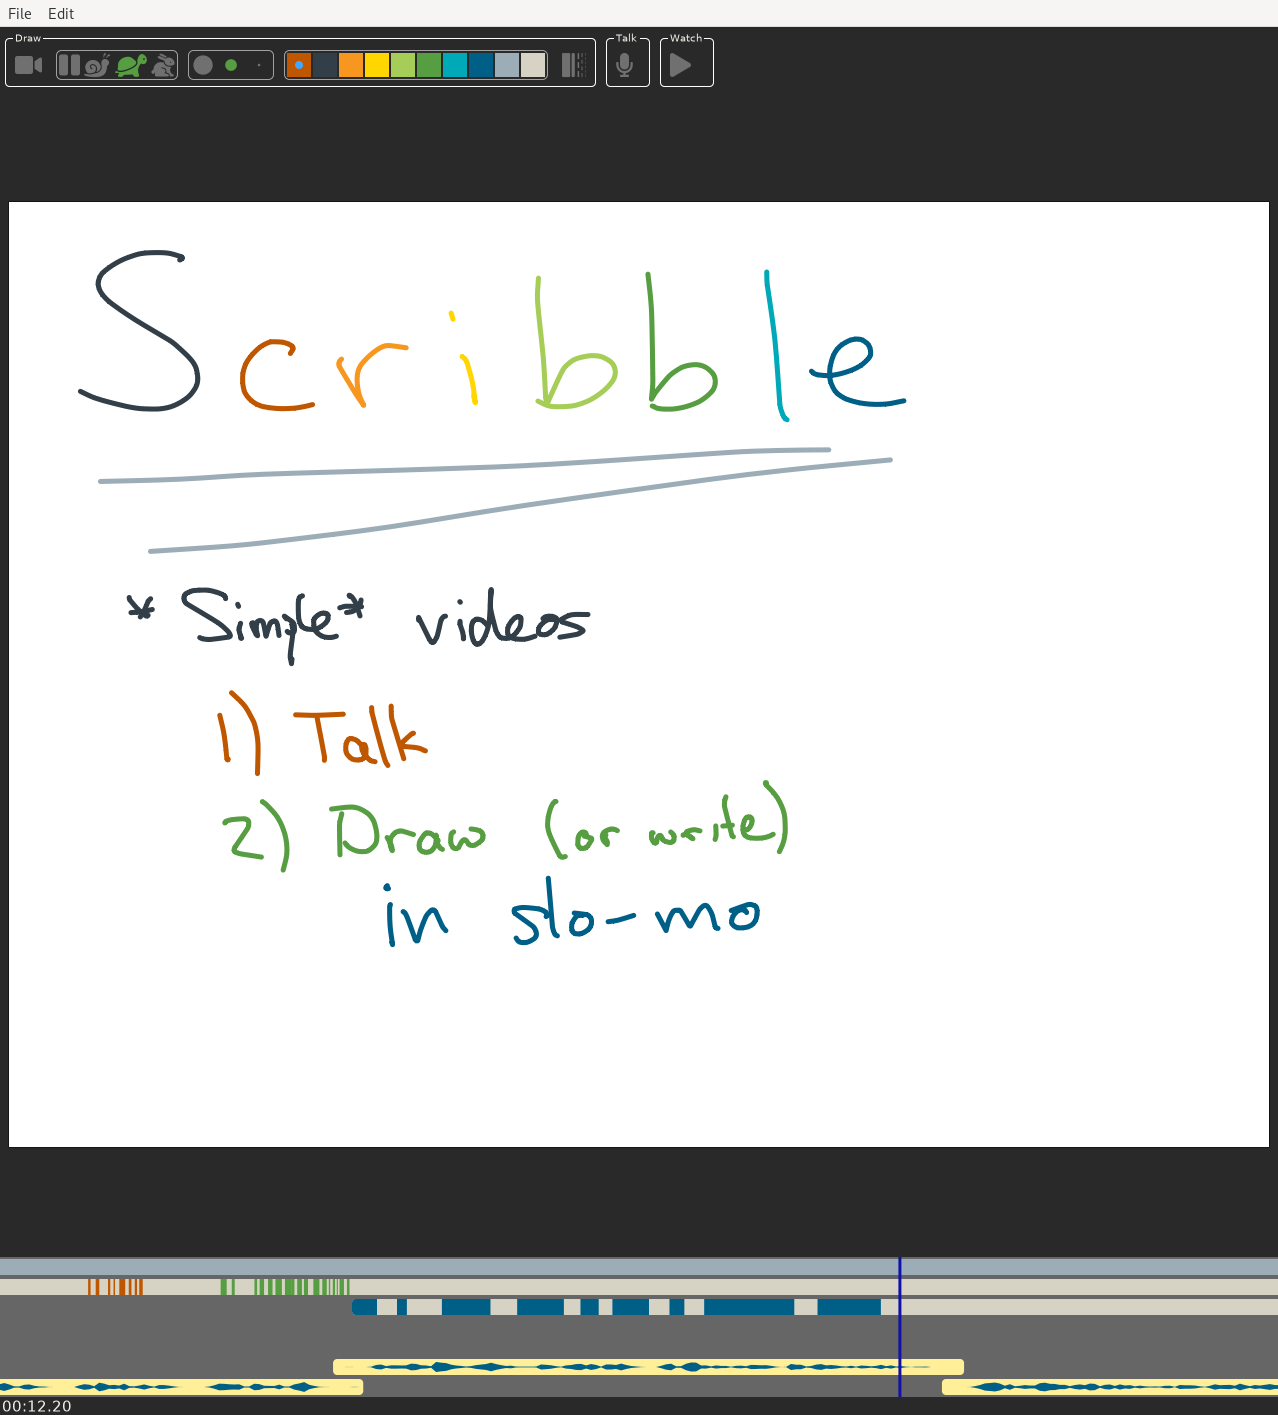 File Edit
Draw Talk Watch
Scribble
*Simple* videos
1) Talk
2) Draw (or write)
in slo-mo
00:12.20